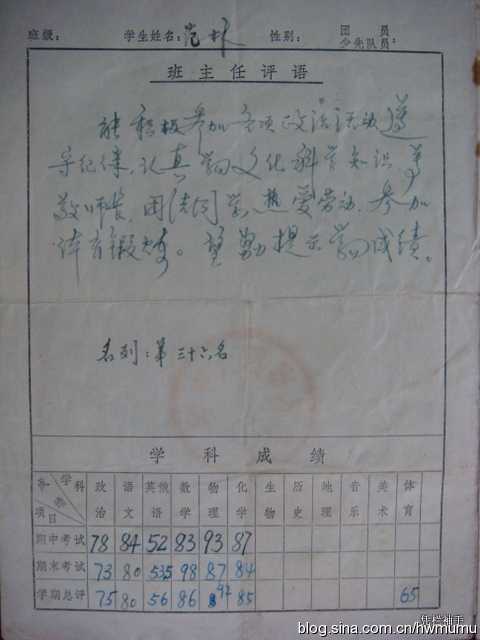 班级： 学生姓名：范林 性别： 团员 少先队员：
班主任评语
能积极参加各项政治活动，遵
守纪律，认真学习文化科学知识，尊
敬师长，团结同学，热爱劳动，参加
体育锻炼。望 提 学习成绩。
名列：第三十六名
学科成绩
学科 成绩 项目 政治 语文 英俄语 数学 物理 化学 生物 历史 地理 音乐 美术 体育
期中考试 78 84 52 83 93 87
期末考试 73 80 535 98 87 84
学期总评 75 80 56 86 92 85 65
凭栏袖手
blog.sina.com.cn/hwmumu